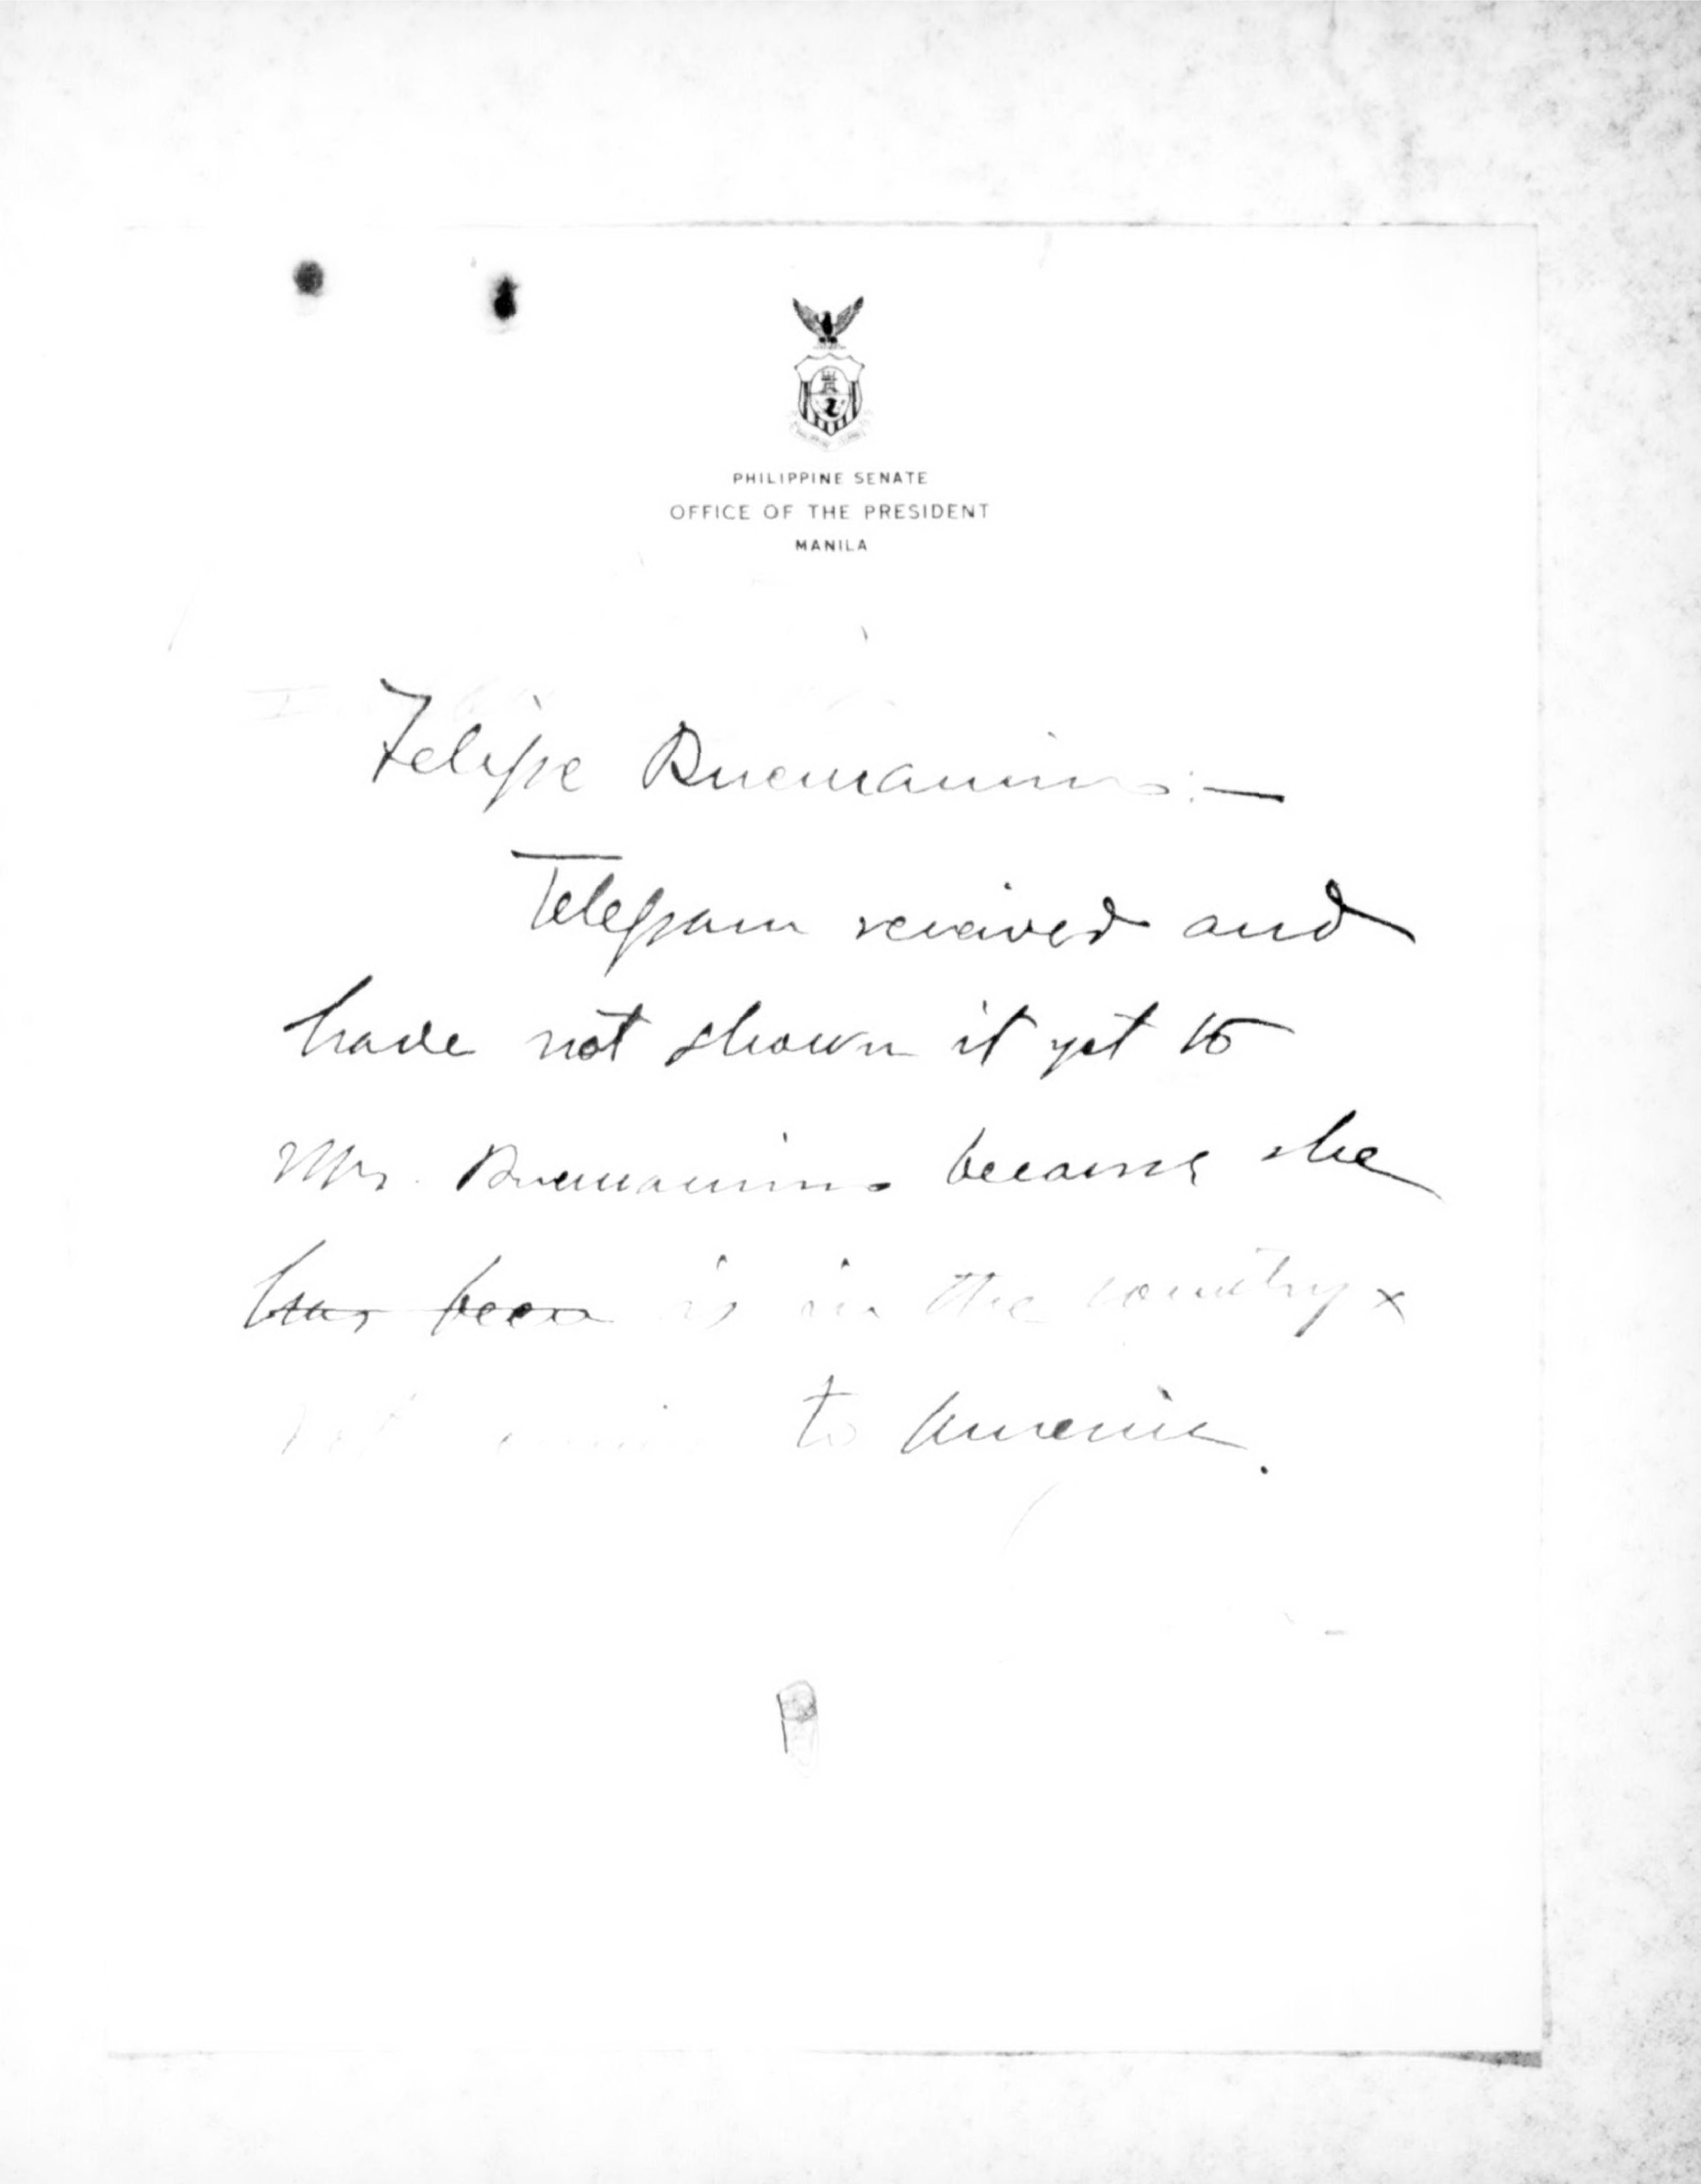 PHILIPPINE SENATE
OFFICE OF THE PRESIDENT
MANILA
Felipe Buencamino:—
Telegram received and
have not shown it yet to
Mrs. Buencamino because she
has been is in the country x
to America.